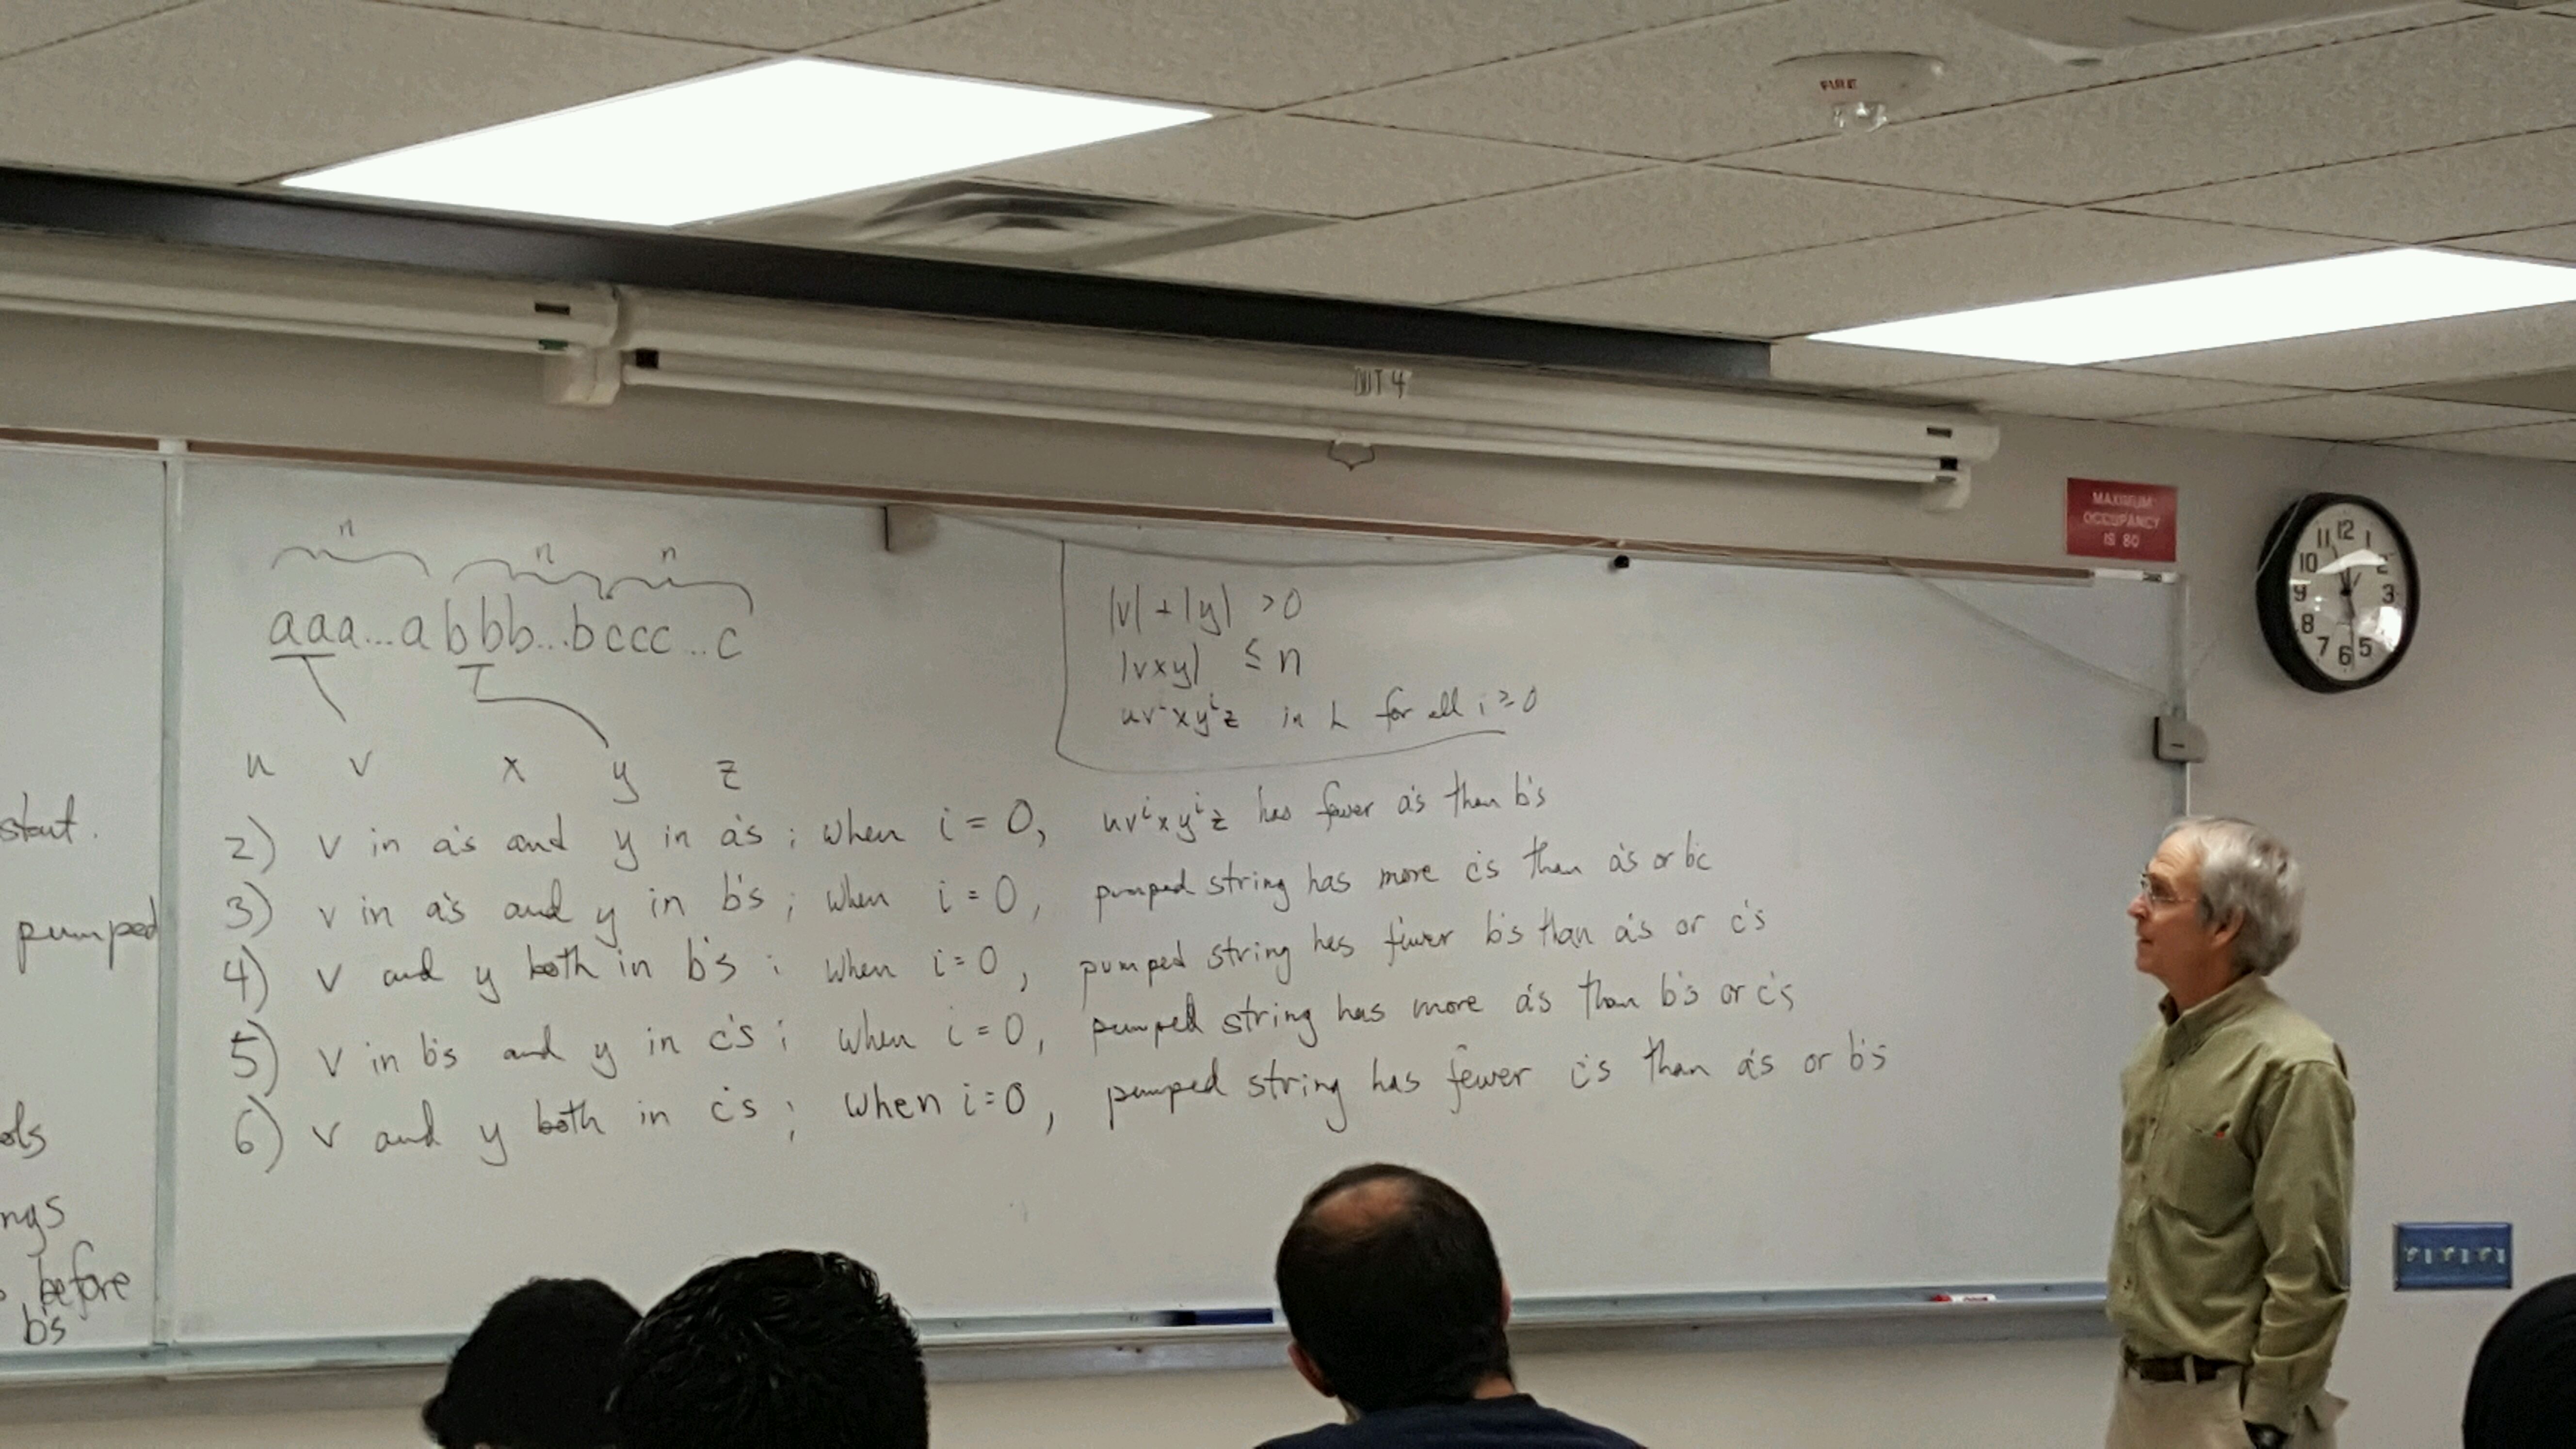 FIRE
UNIT 4
MAXIMUM
OCCUPANCY
IS 80
12 1 2 3 5 6 7 8 9 10 11
n n n
aaa...abbb...bccc...c
u v x y z
|v| + |y| > 0
|vxy| ≤ n
uvⁱxyⁱz in L for all i ≥ 0
2) v in a's and y in a's ; when i = 0, uvⁱxyⁱz has fewer a's than b's
3) v in a's and y in b's ; when i = 0, pumped string has more c's than a's or b's
4) v and y both in b's ; when i = 0, pumped string has fewer b's than a's or c's
5) v in b's and y in c's ; when i = 0, pumped string has more a's than b's or c's
6) v and y both in c's ; when i = 0, pumped string has fewer c's than a's or b's
stant.
pumped
ols
ngs
before
b's